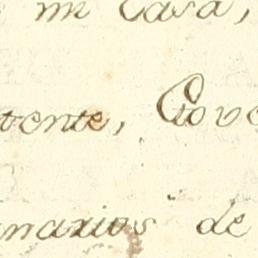 mi Casa,
tente, Gove
narios de